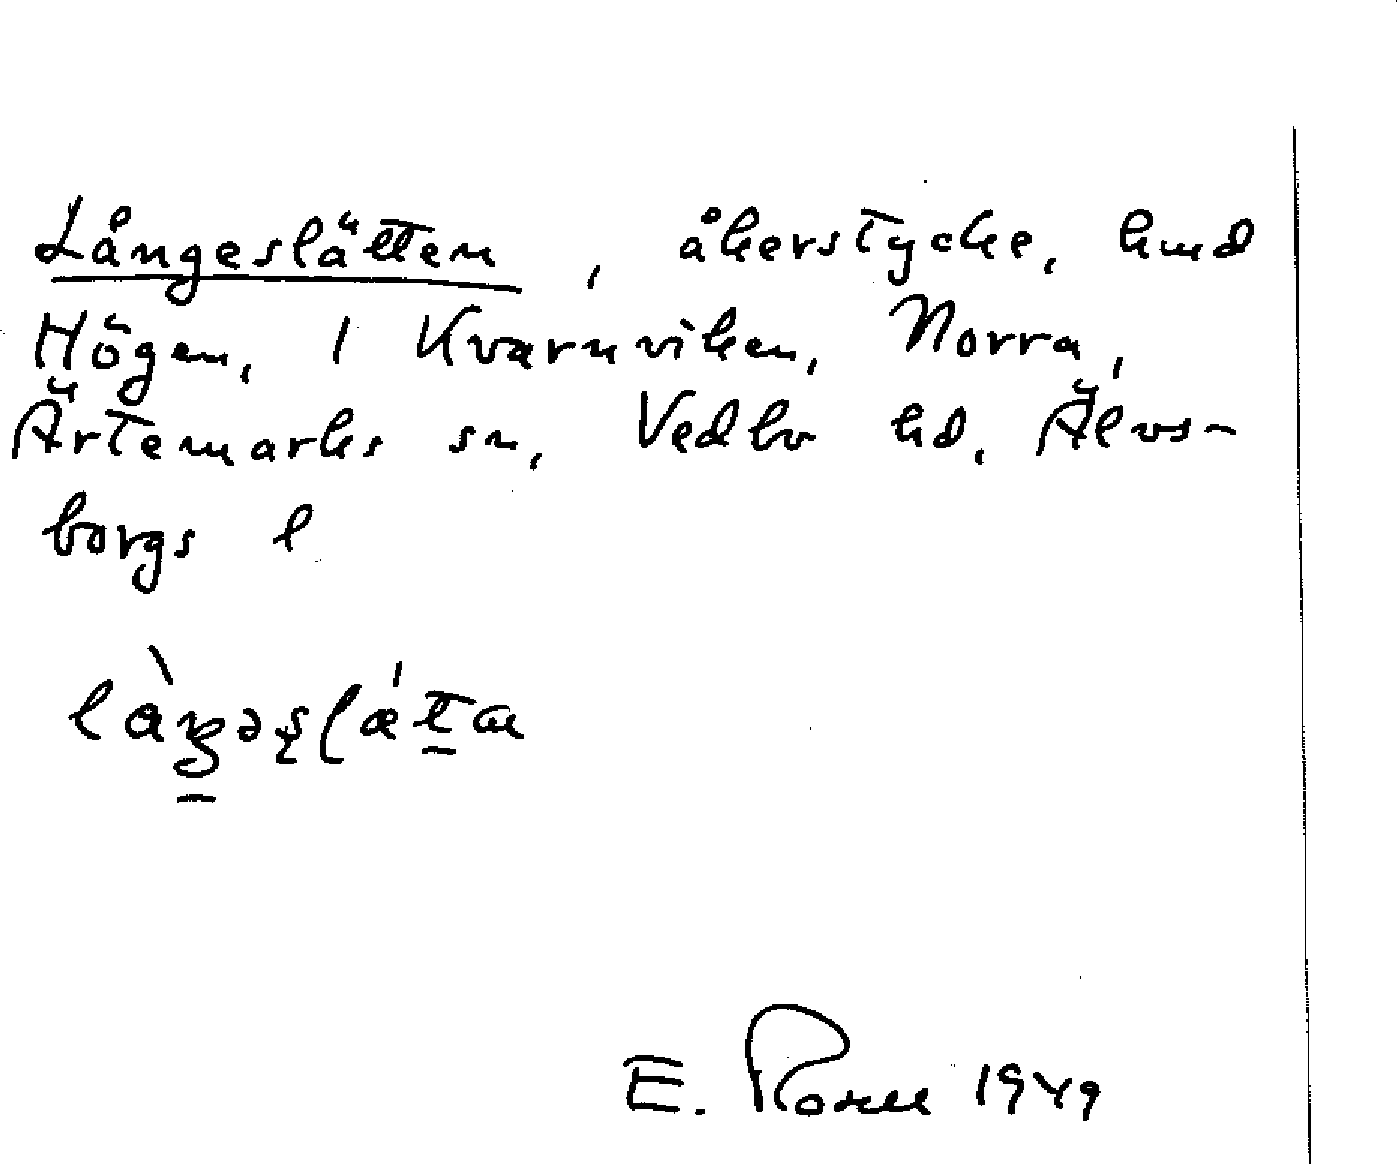 Långeslätten, åkerstycke, hmd
Högen, 1 Kvarnviken, Norra,
Ärtemarks sn, Vedbo hd, Älvs-
borgs l
E. 1949